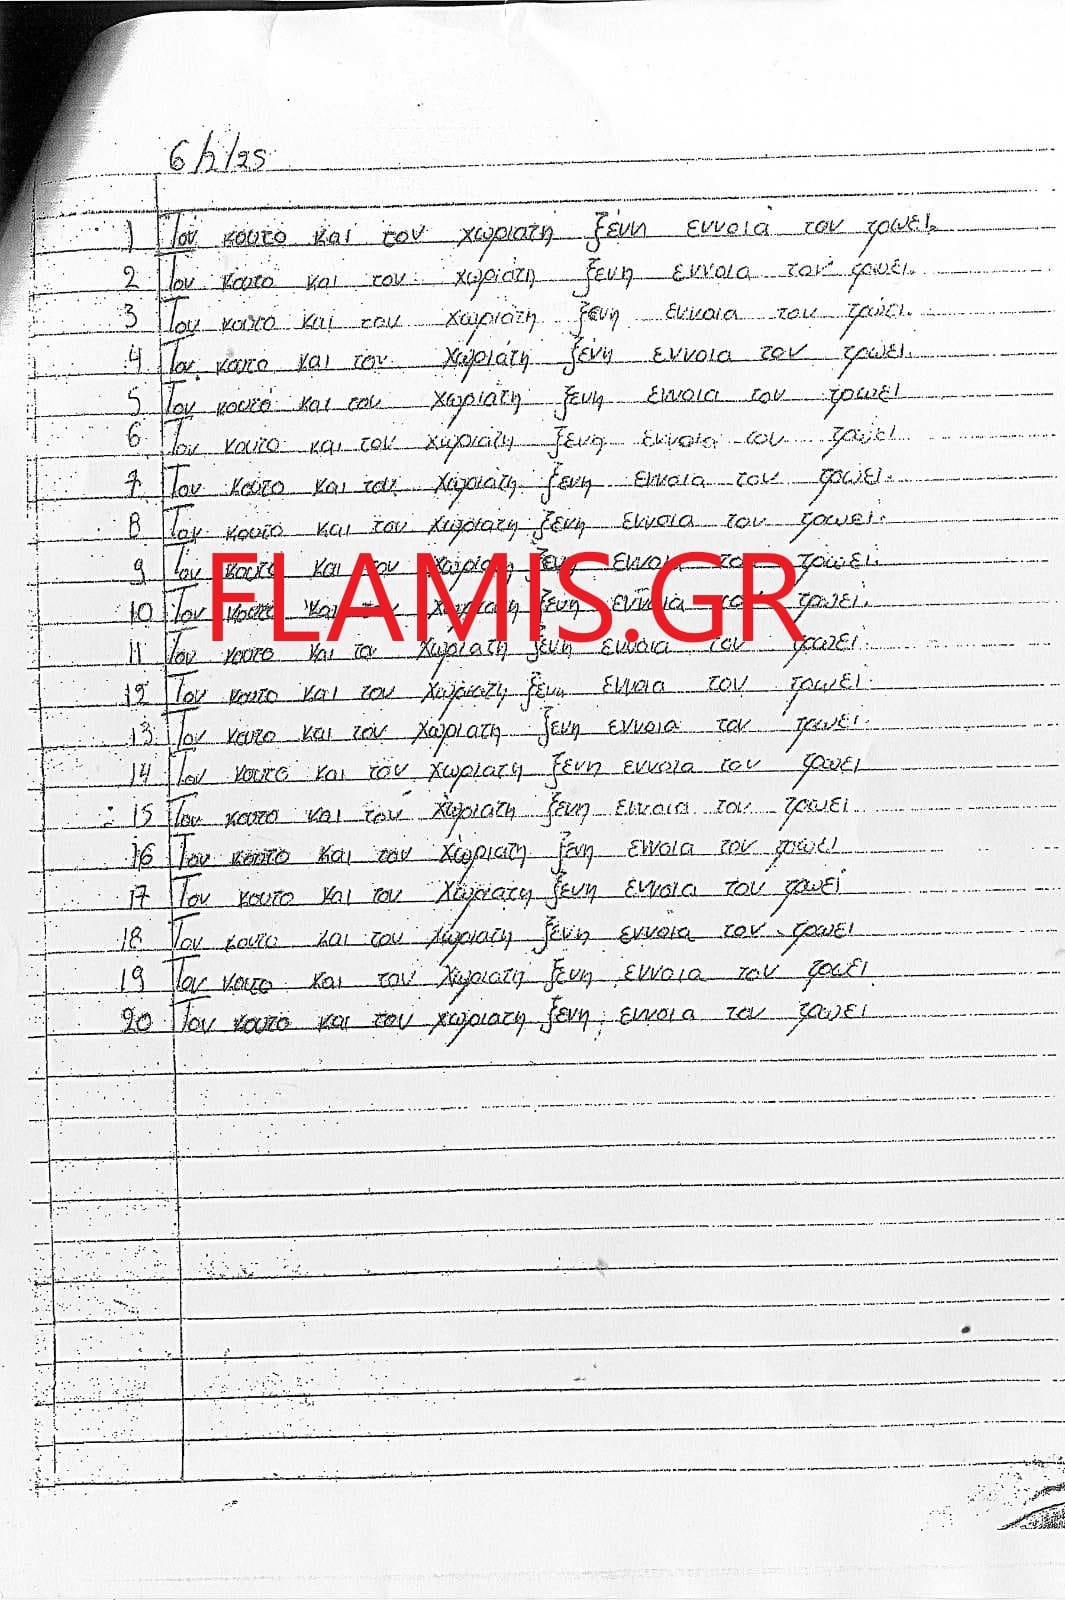 6/2/25
1 Τον κουτό και τον χωριάτη ξένη έννοια τον τρώει.
2 Τον κουτο και τον χωριάτη ξενη εννοια τον τρωει.
3 Τον κουτο και τον χωριάτη ξενη εννοια του τρώει.
4 Τον κουτο και τον χωριάτη ξένη εννοια τον τρωει.
5 Τον κουτό και τον χωριάτη ξενη εννοια τον τρωει
6 Τον κουτο και τον χωριάτη ξενη εννοια τον τρώει
7 Τον κουτο και τον χωριατη ξενη εννοια τον τρωει.
8 Τον κουτο και τον χωριατη ξενη εννοια τον τρωει.
9 Τον κουτο και τον χωριατη ξενη εννοια τον τρωει.
10 Τον κουτο και τον χωριατη ξενη εννοια τον τρωει.
FLAMIS.GR
11 Τον κουτο και τον χωριατη ξενη εννοια τον τρωει
12 Τον κουτο και τον χωριατη ξενη εννοια τον τρωει
13 Τον κουτο και τον χωριατη ξενη εννοια τον τρωει.
14 Τον κουτο και τον χωριατη ξενη εννοια τον τρωει
15 Τον κουτο και τον χωριατη ξενη εννοια τον τρωει
16 Τον κουτο και τον χωριατη ξενη εννοια τον τρώει
17 Τον κουτο και τον χωριατη ξενη εννοια του τρωει
18 Τον κουτο και τον χωριατη ξενη εννοια τον τρωει
19 Τον κουτο και τον χωριατη ξενη εννοια τον τρωει
20 Τον κουτο και τον χωριατη ξενη εννοια τον τρωει